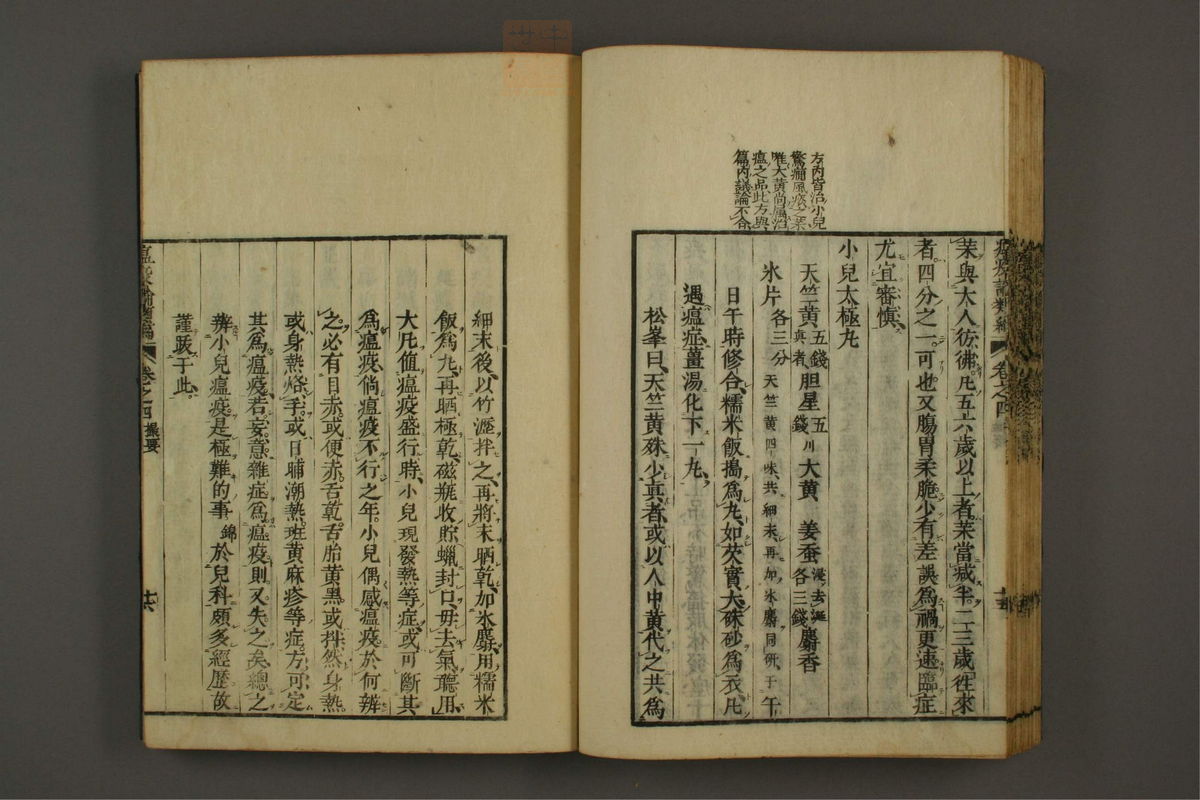 方内皆治小兒
驚癎風痰之藥
唯大黄尚屬治
瘟之品此方與
篇内議論不合
卷之四
藥與大人彷彿凡五六歲以上者藥當減半二三歲往來
者四分之一可也又腸胃柔脆少有差誤爲禍更速臨症
尤宜審慎
小兒太極丸
天竺黄五錢真者胆星五錢川大黄　姜蚕浸去涎各三錢麝香
氷片各三分天竺黄四味共細末再加氷麝同研于午
日午時修合糯米飯搗爲丸如芡實大硃砂爲衣凡
遇瘟症薑湯化下一丸
松峯曰天竺黄殊少真者或以人中黄代之共爲
細末後以竹瀝拌之再將末晒乾加氷麝用糯米
飯爲丸再晒極乾磁瓶收貯蠟封口毋去氣聽用
大凡值瘟疫盛行時小兒現發熱等症或可斷其
爲瘟疫倘瘟疫不行之年小兒偶感瘟疫於何辨
之必有目赤或便赤舌乾舌胎黄黑或抖然身熱
或身熱烙手或日晡潮熱班黄麻疹等症方可定
其爲瘟疫若妄意雜症爲瘟疫則又失之矣總之
辨小兒瘟疫是極難的事錦於兒科頗多經歷故
謹跋于此
卷之四　撮要